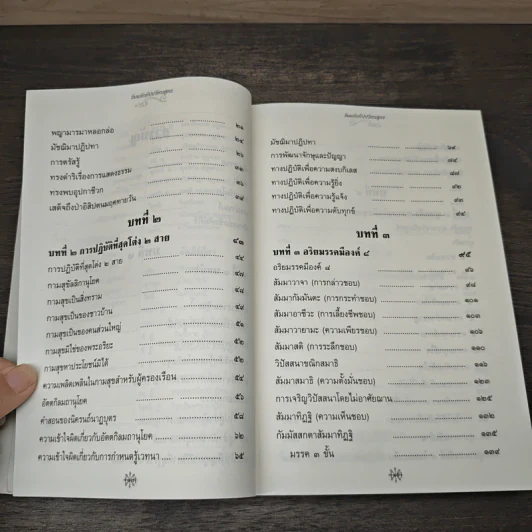 พญามารมาหลอกล่อ ๒๑
มัชฌิมาปฏิปทา ๒๔
การตรัสรู้ ๒๖
ทรงดำริเรื่องการแสดงธรรม ๓๑
ทรงพบอุปกาชีวก
เสด็จถึงป่าอิสิปตนมฤคทายวัน
บทที่ ๒
บทที่ ๒ การปฏิบัติที่สุดโต่ง ๒ สาย ๔๓
การปฏิบัติที่สุดโต่ง ๒ สาย ๔๔
กามสุขัลลิกานุโยค ๔๗
กามสุขเป็นสิ่งทราม ๔๘
กามสุขเป็นของชาวบ้าน
กามสุขเป็นของคนส่วนใหญ่ ๕๑
กามสุขมิใช่ของพระอริยะ ๕๒
กามสุขหาประโยชน์มิได้ ๕๒
ความเพลิดเพลินในกามสุขสำหรับผู้ครองเรือน ๕๔
อัตตกิลมถานุโยค ๕๖
คำสอนของนิครนถ์นาฏบุตร ๕๘
ความเข้าใจผิดเกี่ยวกับอัตตกิลมถานุโยค ๖๒
ความเข้าใจผิดเกี่ยวกับการกำหนดรู้เวทนา ๖๕
มัชฌิมาปฏิปทา
การพัฒนาจักษุและปัญญา ๗๔
ทางปฏิบัติเพื่อความสงบกิเลส ๘๗
ทางปฏิบัติเพื่อความรู้ยิ่ง ๙๒
ทางปฏิบัติเพื่อความรู้แจ้ง ๙๓
ทางปฏิบัติเพื่อความดับทุกข์ ๙๔
บทที่ ๓
บทที่ ๓ อริยมรรคมีองค์ ๘ ๙๕
อริยมรรคมีองค์ ๘ ๙๖
สัมมาวาจา (การกล่าวชอบ) ๙๘
สัมมากัมมันตะ (การกระทำชอบ) ๑๐๑
สัมมาอาชีวะ (การเลี้ยงชีพชอบ) ๑๐๓
สัมมาวายามะ (ความเพียรชอบ) ๑๐๖
สัมมาสติ (การระลึกชอบ) ๑๑๐
วิปัสสนาขณิกสมาธิ
สัมมาสมาธิ (ความตั้งมั่นชอบ) ๑๒๓
การเจริญวิปัสสนาโดยไม่อาศัยฌาน ๑๒๕
สัมมาทิฏฐิ (ความเห็นชอบ) ๑๓๒
กัมมัสสกตาสัมมาทิฏฐิ ๑๓๕
มรรค ๓ ขั้น ๑๓๔